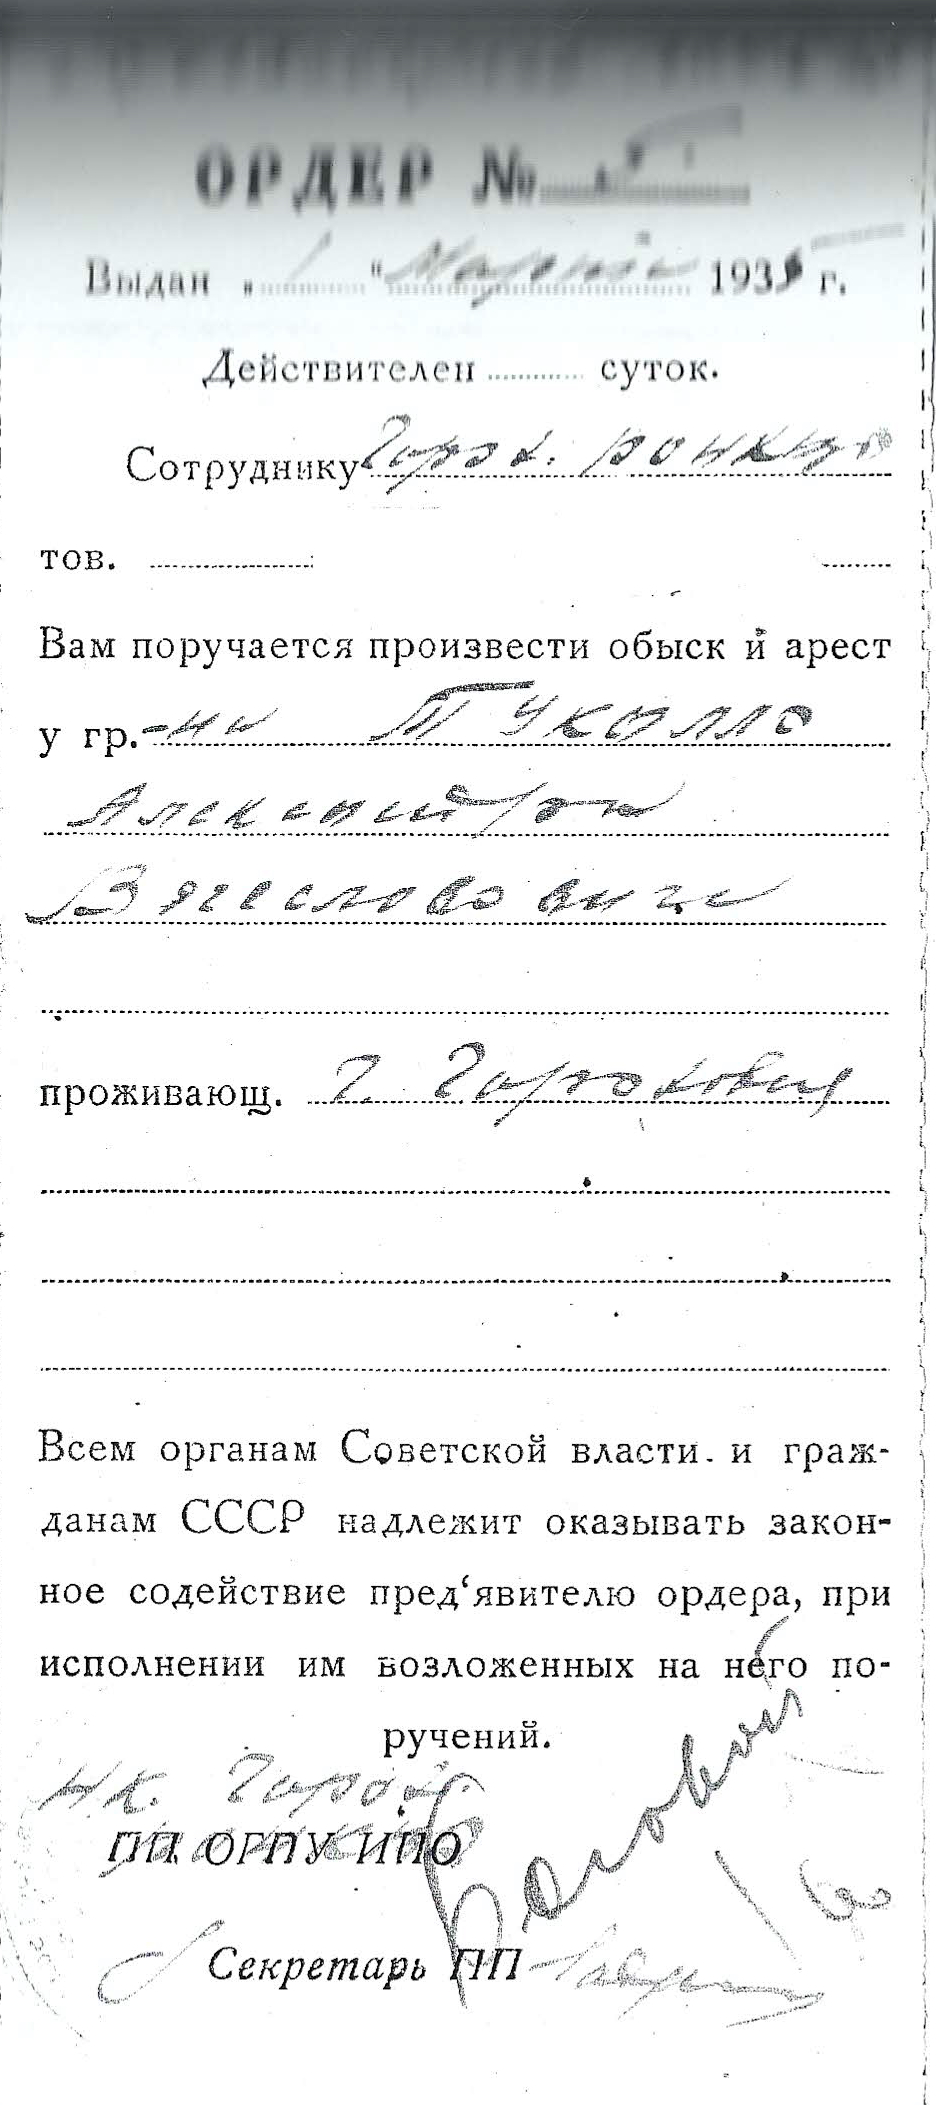 ОРДЕР №
Выдан „ 1 " Марта 1935 г.
Действителен суток.
Сотруднику Горох.
тов.
Вам поручается произвести обыск и арест
у гр.-на Туколло
Александра
Вячеславовича
проживающ. г. Гороховец
Всем органам Советской власти. и граж-
данам СССР надлежит оказывать закон-
ное содействие пред‘явителю ордера, при
исполнении им возложенных на него по-
ручений.
Нк. Горох.
ПП ОГПУ ИПО
Секретарь ПП